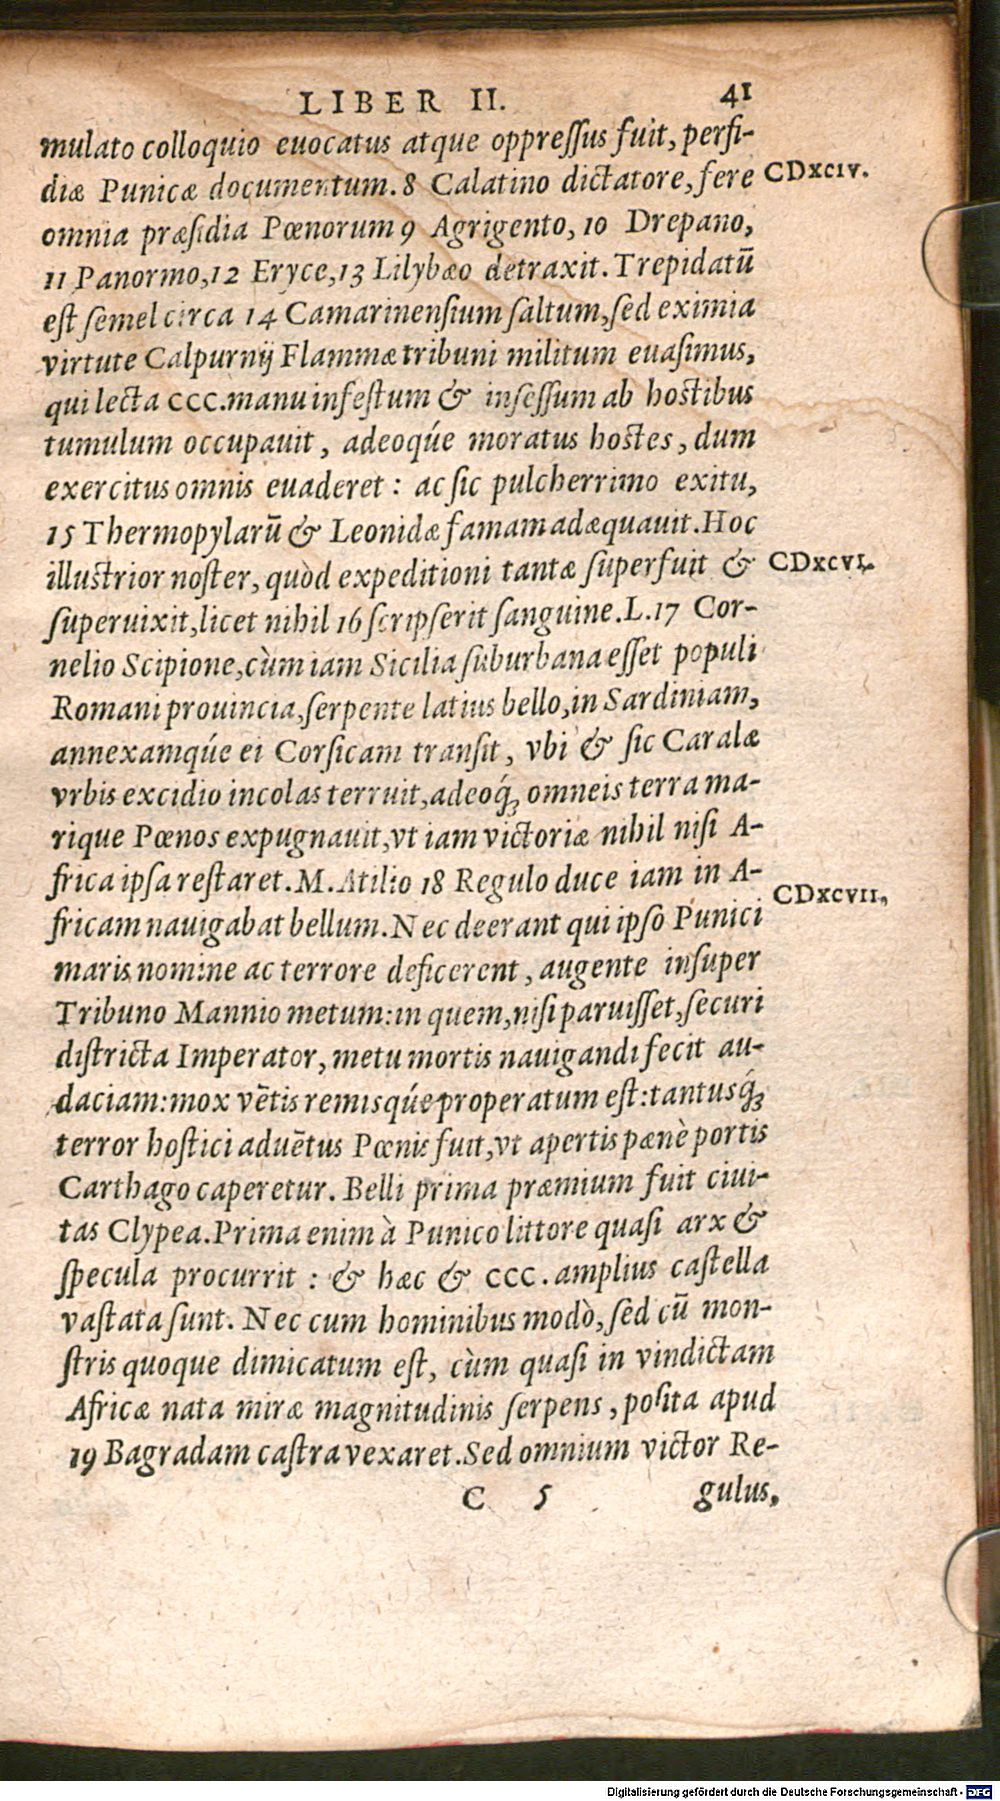 LIBER II. 41
mulato colloquio euocatus atque oppreſſus fuit, perfi-
diæ Punicæ documentum. 8 Calatino dictatore, fere CDXCIV.
omnia præſidia Pœnorum 9 Agrigento, 10 Drepano,
11 Panormo, 12 Eryce, 13 Lilybæo detraxit. Trepidatũ
eſt ſemel circa 14 Camarinenſium ſaltum, ſed eximia
virtute Calpurnij Flammæ tribuni militum euaſimus,
qui lecta CCC. manu infeſtum & inſeſſum ab hoſtibus
tumulum occupauit, adeoq́ue moratus hoſtes, dum
exercitus omnis euaderet: ac ſic pulcherrimo exitu,
15 Thermopylarũ & Leonidæ famam adæquauit. Hoc
illuſtrior noſter, quòd expeditioni tantæ ſuperfuit & CDXCVI.
ſuperuixit, licet nihil 16 ſcripſerit ſanguine. L. 17 Cor-
nelio Scipione, cùm iam Sicilia ſuburbana eſſet populi
Romani prouincia, ſerpente latius bello, in Sardiniam,
annexamq́ue ei Corſicam tranſit, vbi & ſic Caralæ
vrbis excidio incolas terruit, adeoq́; omneis terra ma-
rique Pœnos expugnauit, vt iam victoriæ nihil niſi A-
frica ipſa reſtaret. M. Atilio 18 Regulo duce iam in A-
fricam nauigabat bellum. Nec deerant qui ipſo Punici CDXCVII,
maris nomine ac terrore deficerent, augente inſuper
Tribuno Mannio metum: in quem, niſi paruiſſet, ſecuri
diſtricta Imperator, metu mortis nauigandi fecit au-
daciam: mox vẽtis remisq́ue properatum eſt: tantusq́;
terror hoſtici aduẽtus Pœnis fuit, vt apertis pænè portis
Carthago caperetur. Belli prima præmium fuit ciui-
tas Clypea. Prima enim à Punico littore quaſi arx &
ſpecula procurrit: & hæc & CCC. amplius caſtella
vaſtata ſunt. Nec cum hominibus modò, ſed cũ mon-
ſtris quoque dimicatum eſt, cùm quaſi in vindictam
Africæ nata miræ magnitudinis ſerpens, poſita apud
19 Bagradam caſtra vexaret. Sed omnium victor Re-
C 5 gulus,
Digitalisierung gefördert durch die Deutsche Forschungsgemeinschaft - DFG